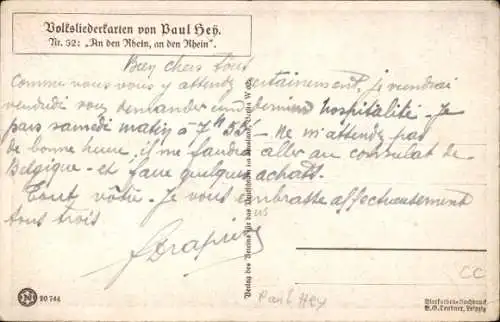 Volksliederkarten von Paul Hey.
Nr. 92: „An den Rhein, an den Rhein".
Bien chers tous
Comme vous vous y attendez certainement, je viendrai
vendredi vous demander une dernière hospitalité - Je
pars samedi matin à 7h 55' - Ne m'attendez pas
de bonne heure, il me faudra aller au consulat de
Belgique - et faire quelques achats.
Tout vôtre. Je vous embrasse affectueusement
tous trois
Verlag des Vereins für das Deutschtum im Ausland, Berlin W
us
CC
Paul Hey
20 744
Vierfarben-Buchdruck
B.G. Teubner, Leipzig